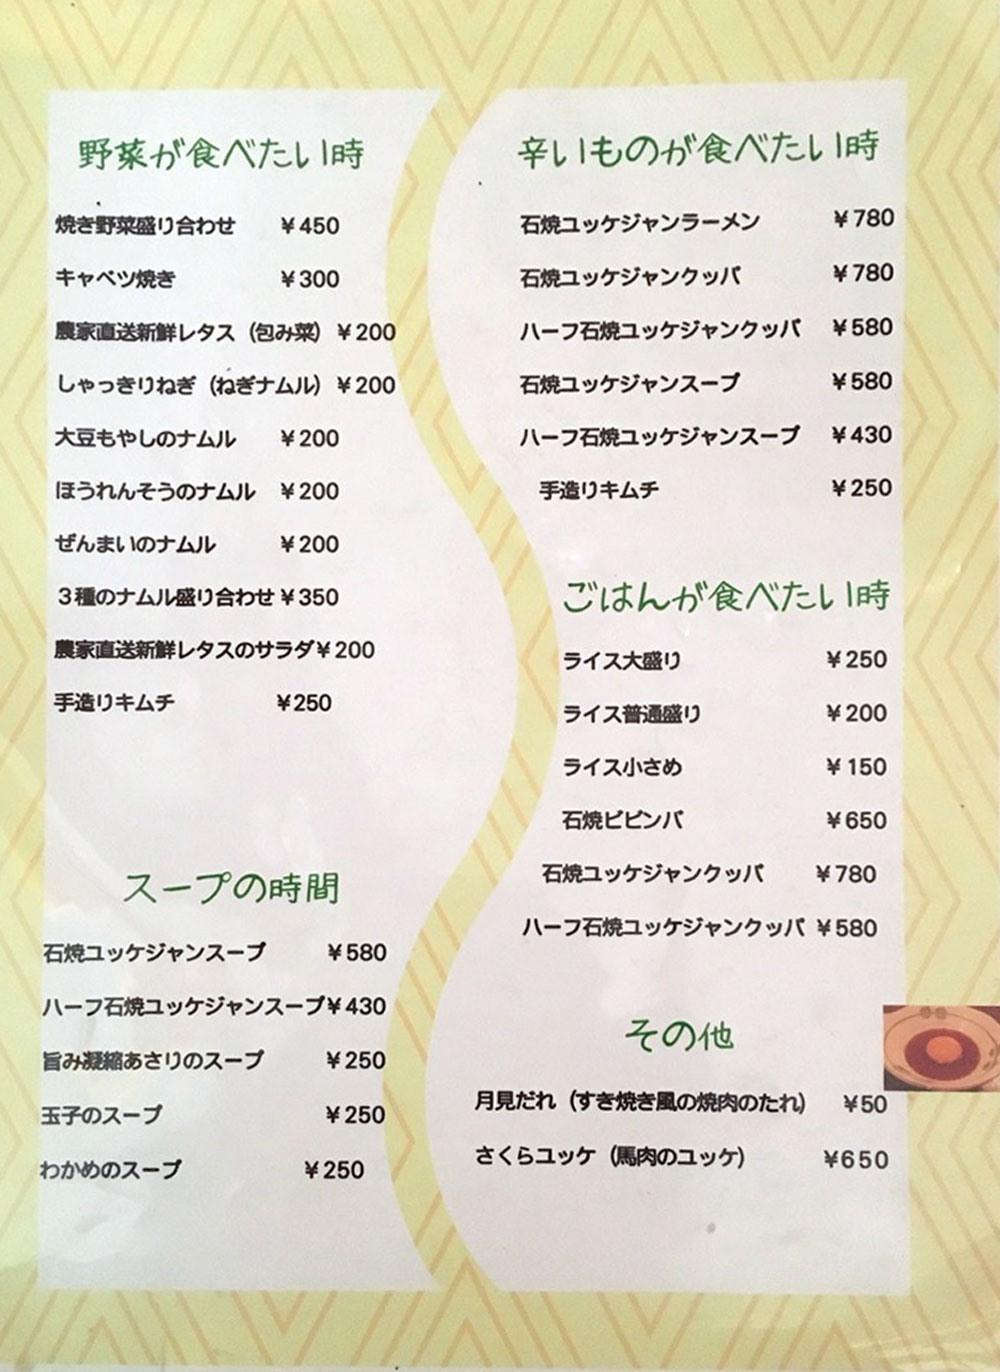 野菜が食べたい時
焼き野菜盛り合わせ ￥450
キャベツ焼き ￥300
農家直送新鮮レタス（包み菜） ￥200
しゃっきりねぎ（ねぎナムル） ￥200
大豆もやしのナムル ￥200
ほうれんそうのナムル ￥200
ぜんまいのナムル ￥200
３種のナムル盛り合わせ ￥350
農家直送新鮮レタスのサラダ ￥200
手造りキムチ ￥250
スープの時間
石焼ユッケジャンスープ ￥580
ハーフ石焼ユッケジャンスープ ￥430
旨み凝縮あさりのスープ ￥250
玉子のスープ ￥250
わかめのスープ ￥250
辛いものが食べたい時
石焼ユッケジャンラーメン ￥780
石焼ユッケジャンクッパ ￥780
ハーフ石焼ユッケジャンクッパ ￥580
石焼ユッケジャンスープ ￥580
ハーフ石焼ユッケジャンスープ ￥430
手造りキムチ ￥250
ごはんが食べたい時
ライス大盛り ￥250
ライス普通盛り ￥200
ライス小さめ ￥150
石焼ビビンバ ￥650
石焼ユッケジャンクッパ ￥780
ハーフ石焼ユッケジャンクッパ ￥580
その他
月見だれ（すき焼き風の焼肉のたれ） ￥50
さくらユッケ（馬肉のユッケ） ￥650